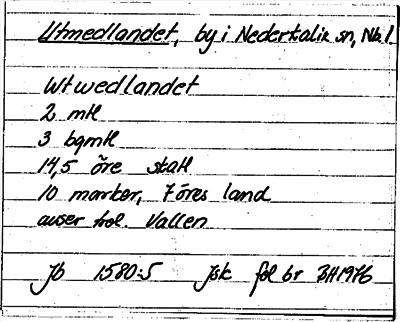 Utmedlandet, by i Nederkalix sn, Nb l.
Wtwedlandet
2 mtl
3 bgmtl
14,5 öre skatt
10 marker, 7 öres land
avser trol. Vallen
Jb 1580:5 fsk fol br BH 1976